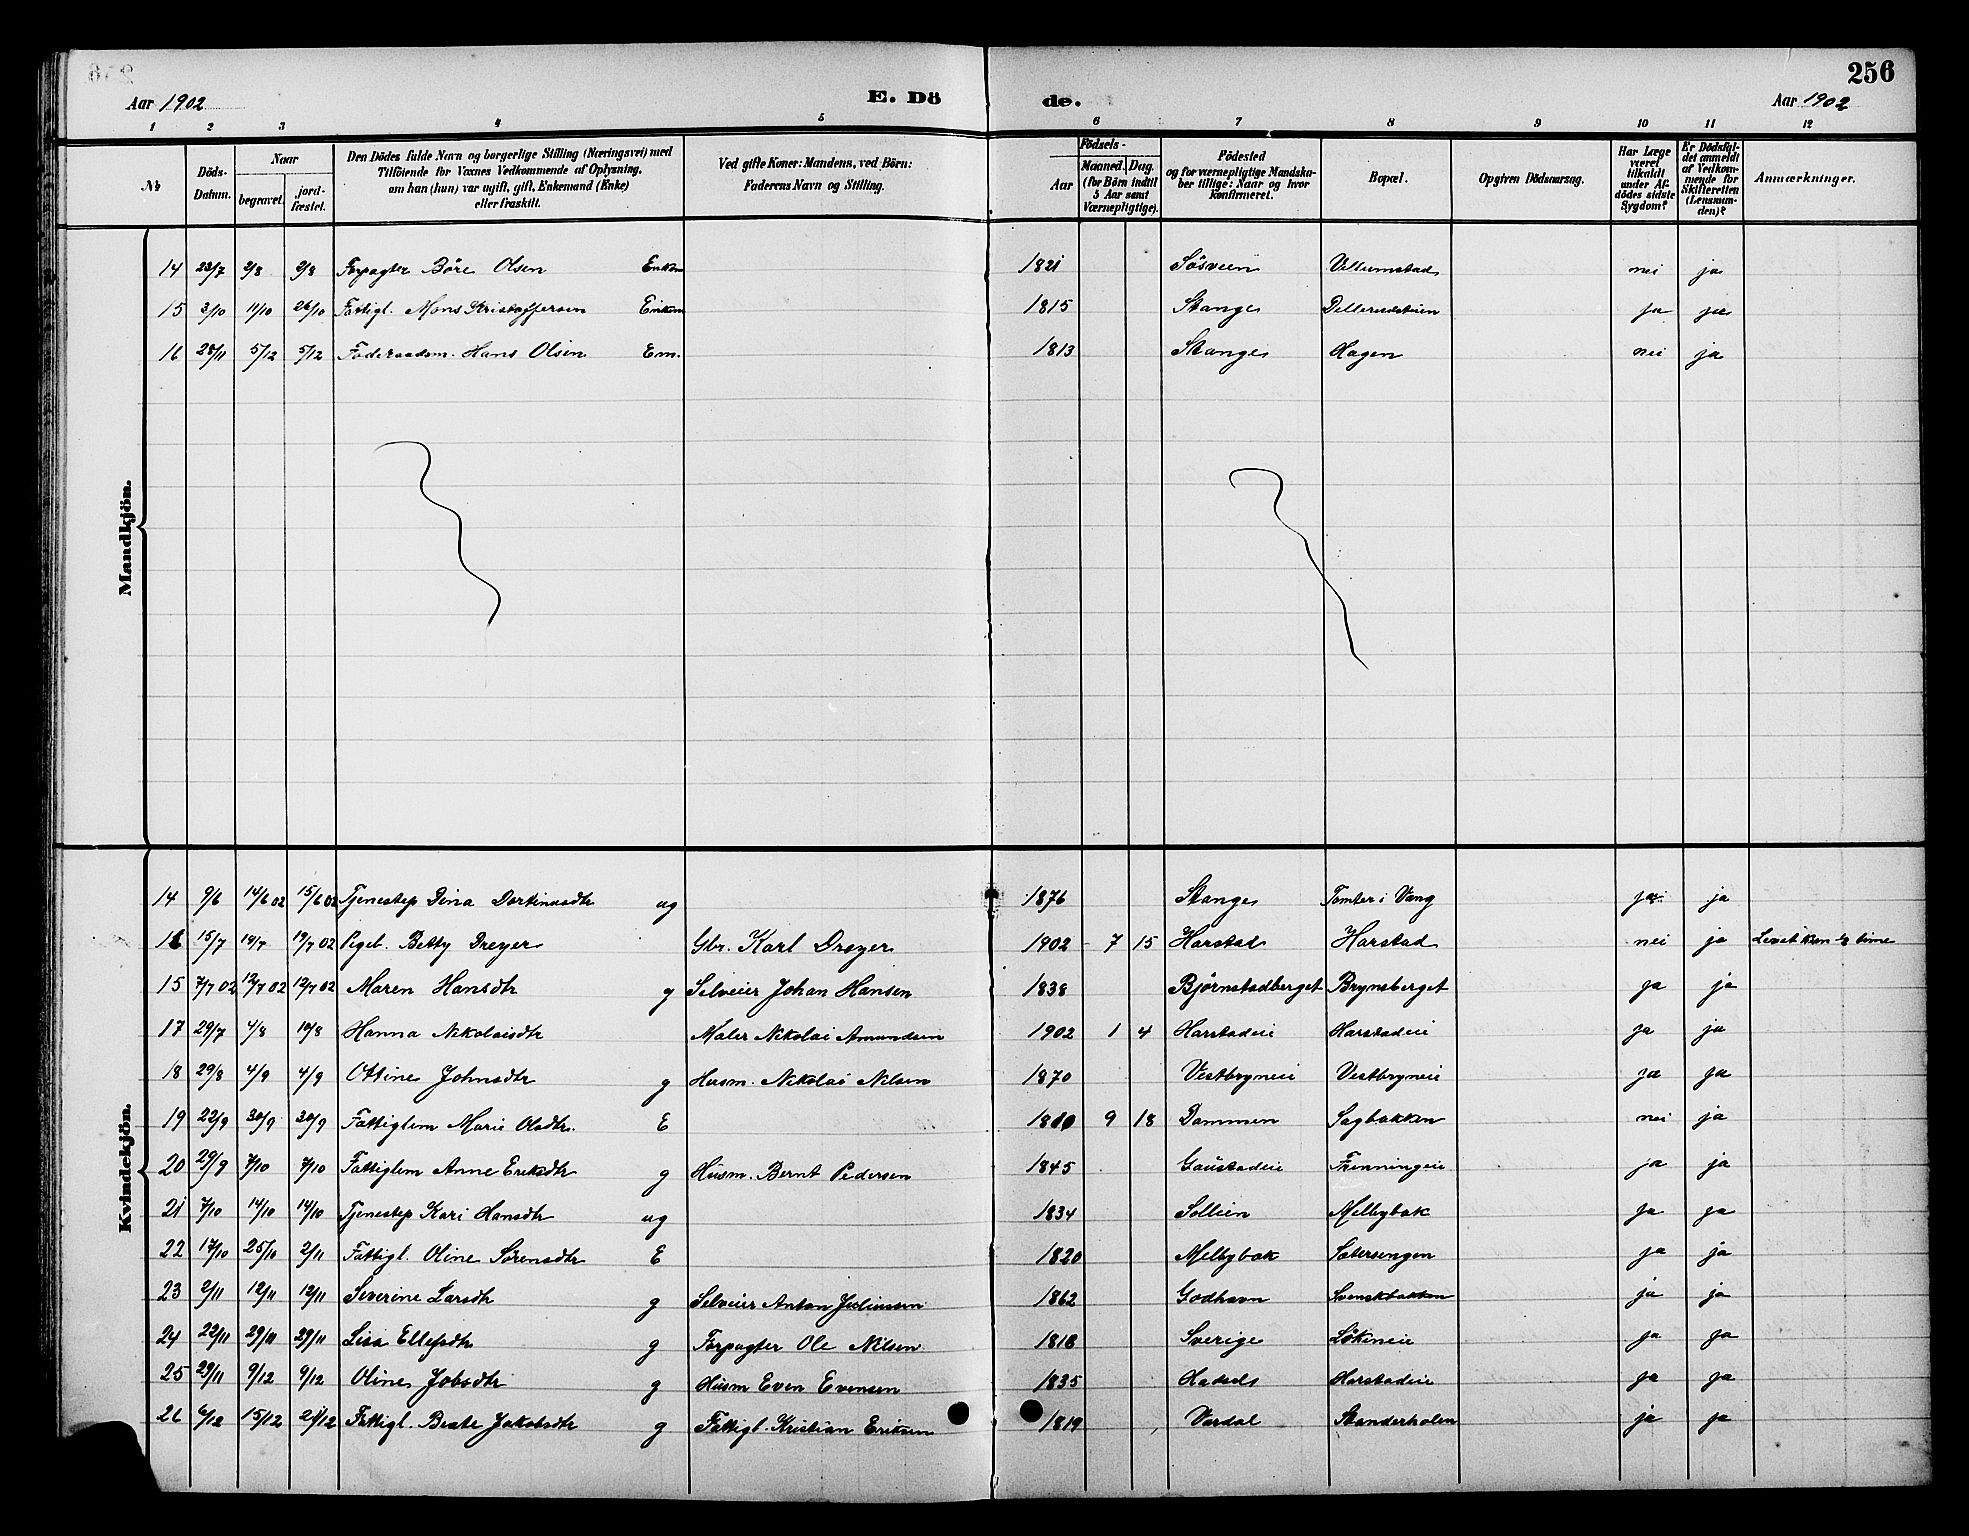 256
Aar 1902 E. Dö de. Aar 1902
1 2 3 4 5 6 7 8 9 10 11 12
№ Döds-Datum. Naar begravet. jord-fæstet. Den Dödes fulde Navn og borgerlige Stilling (Næringsvei) med Tilföiende for Voxnes Vedkommende af Oplysning, om han (hun) var ugift, gift, Enkemand (Enke) eller fraskilt. Ved gifte Koner: Mandens, ved Börn: Faderens Navn og Stilling. Födsels- Aar Maaned. Dag. (for Börn indtil 5 Aar samt Værnepligtige). Födested og for værnepligtige Mandska-ber tillige: Naar og hvor Konfirmeret. Bopæl. Opgiven Dödsaarsag. Har Læge været tilkaldt under Af-dödes sidste Sygdom? Er Dödsfal-det anmeldt af Vedkom-mende for Skifteretten (Lensman-den)? Anmærkninger.
Mandkjön.
14 23/7 2/8 2/8 Forpagter Böre Olsen Enkem 1821 Sösveen Vellumstad nei ja
15 3/10 11/10 26/10 Fattigl. Mons Kristoffersen Enkem 1815 Stange Dellerudsteien ja ja
16 28/11 5/12 5/12 Föderaadsm. Hans Olsen Em. 1813 Stange Hagen nei ja
Kvindekjön.
14 9/6 14/6 02 15/6 02 Tjenestep Dina Dortinusdtr ug 1876 Stange Tomter i Vang ja ja
16 15/7 19/7 19/7 02 Pigeb. Betty Dreyer Gbr. Karl Dreyer 1902 7 15 Harstad Harstad nei ja Levet kun ½ time
15 7/7 02 12/7 02 12/7 02 Maren Hansdtr g Selveier Johan Hansen 1838 Bjørnstadberget Brynsberget ja ja
17 29/7 4/8 10/8 Hanna Nikolaisdtr Maler Nikolai Amundsen 1902 1 4 Harstadeie Harstadeie ja ja
18 29/8 4/9 4/9 Ottine Johnsdtr g Husm. Nikolai Nilsen 1870 Vestbryneie Vestbryneie ja ja
19 22/9 30/9 30/9 Fattiglem Marie Olsdtr. E 1810 9 18 Dammen Sagbakken nei ja
20 29/9 7/10 7/10 Fattiglem Anne Eriksdtr g Husm. Bernt Pedersen 1845 Gaustadeie Frenningeie ja ja
21 7/10 14/10 14/10 Tjenestep Kari Hansdtr ug 1834 Sollien Melbybak ja ja
22 17/10 25/10 2/11 Fattigl. Oline Sörensdtr E 1820 Melbybak Sætersengen ja ja
23 2/11 12/11 12/11 Severine Larsdtr g Selveier Anton Juliussen 1862 Godhavn Svenskbakken ja ja
24 22/11 29/11 29/11 Lisa Ellefsdtr g Forpagter Ole Nilsen 1818 Sverige Lökeneie ja ja
25 29/11 9/12 9/12 Oline Jobsdtr g Husm Even Evensen 1835 Harstadeie ja ja
26 6/12 15/12 21/12 Fattigl. Beate Jakobsdtr g Fattigl. Kristian Eriksen 1819 Vardal Skanderholen ja ja